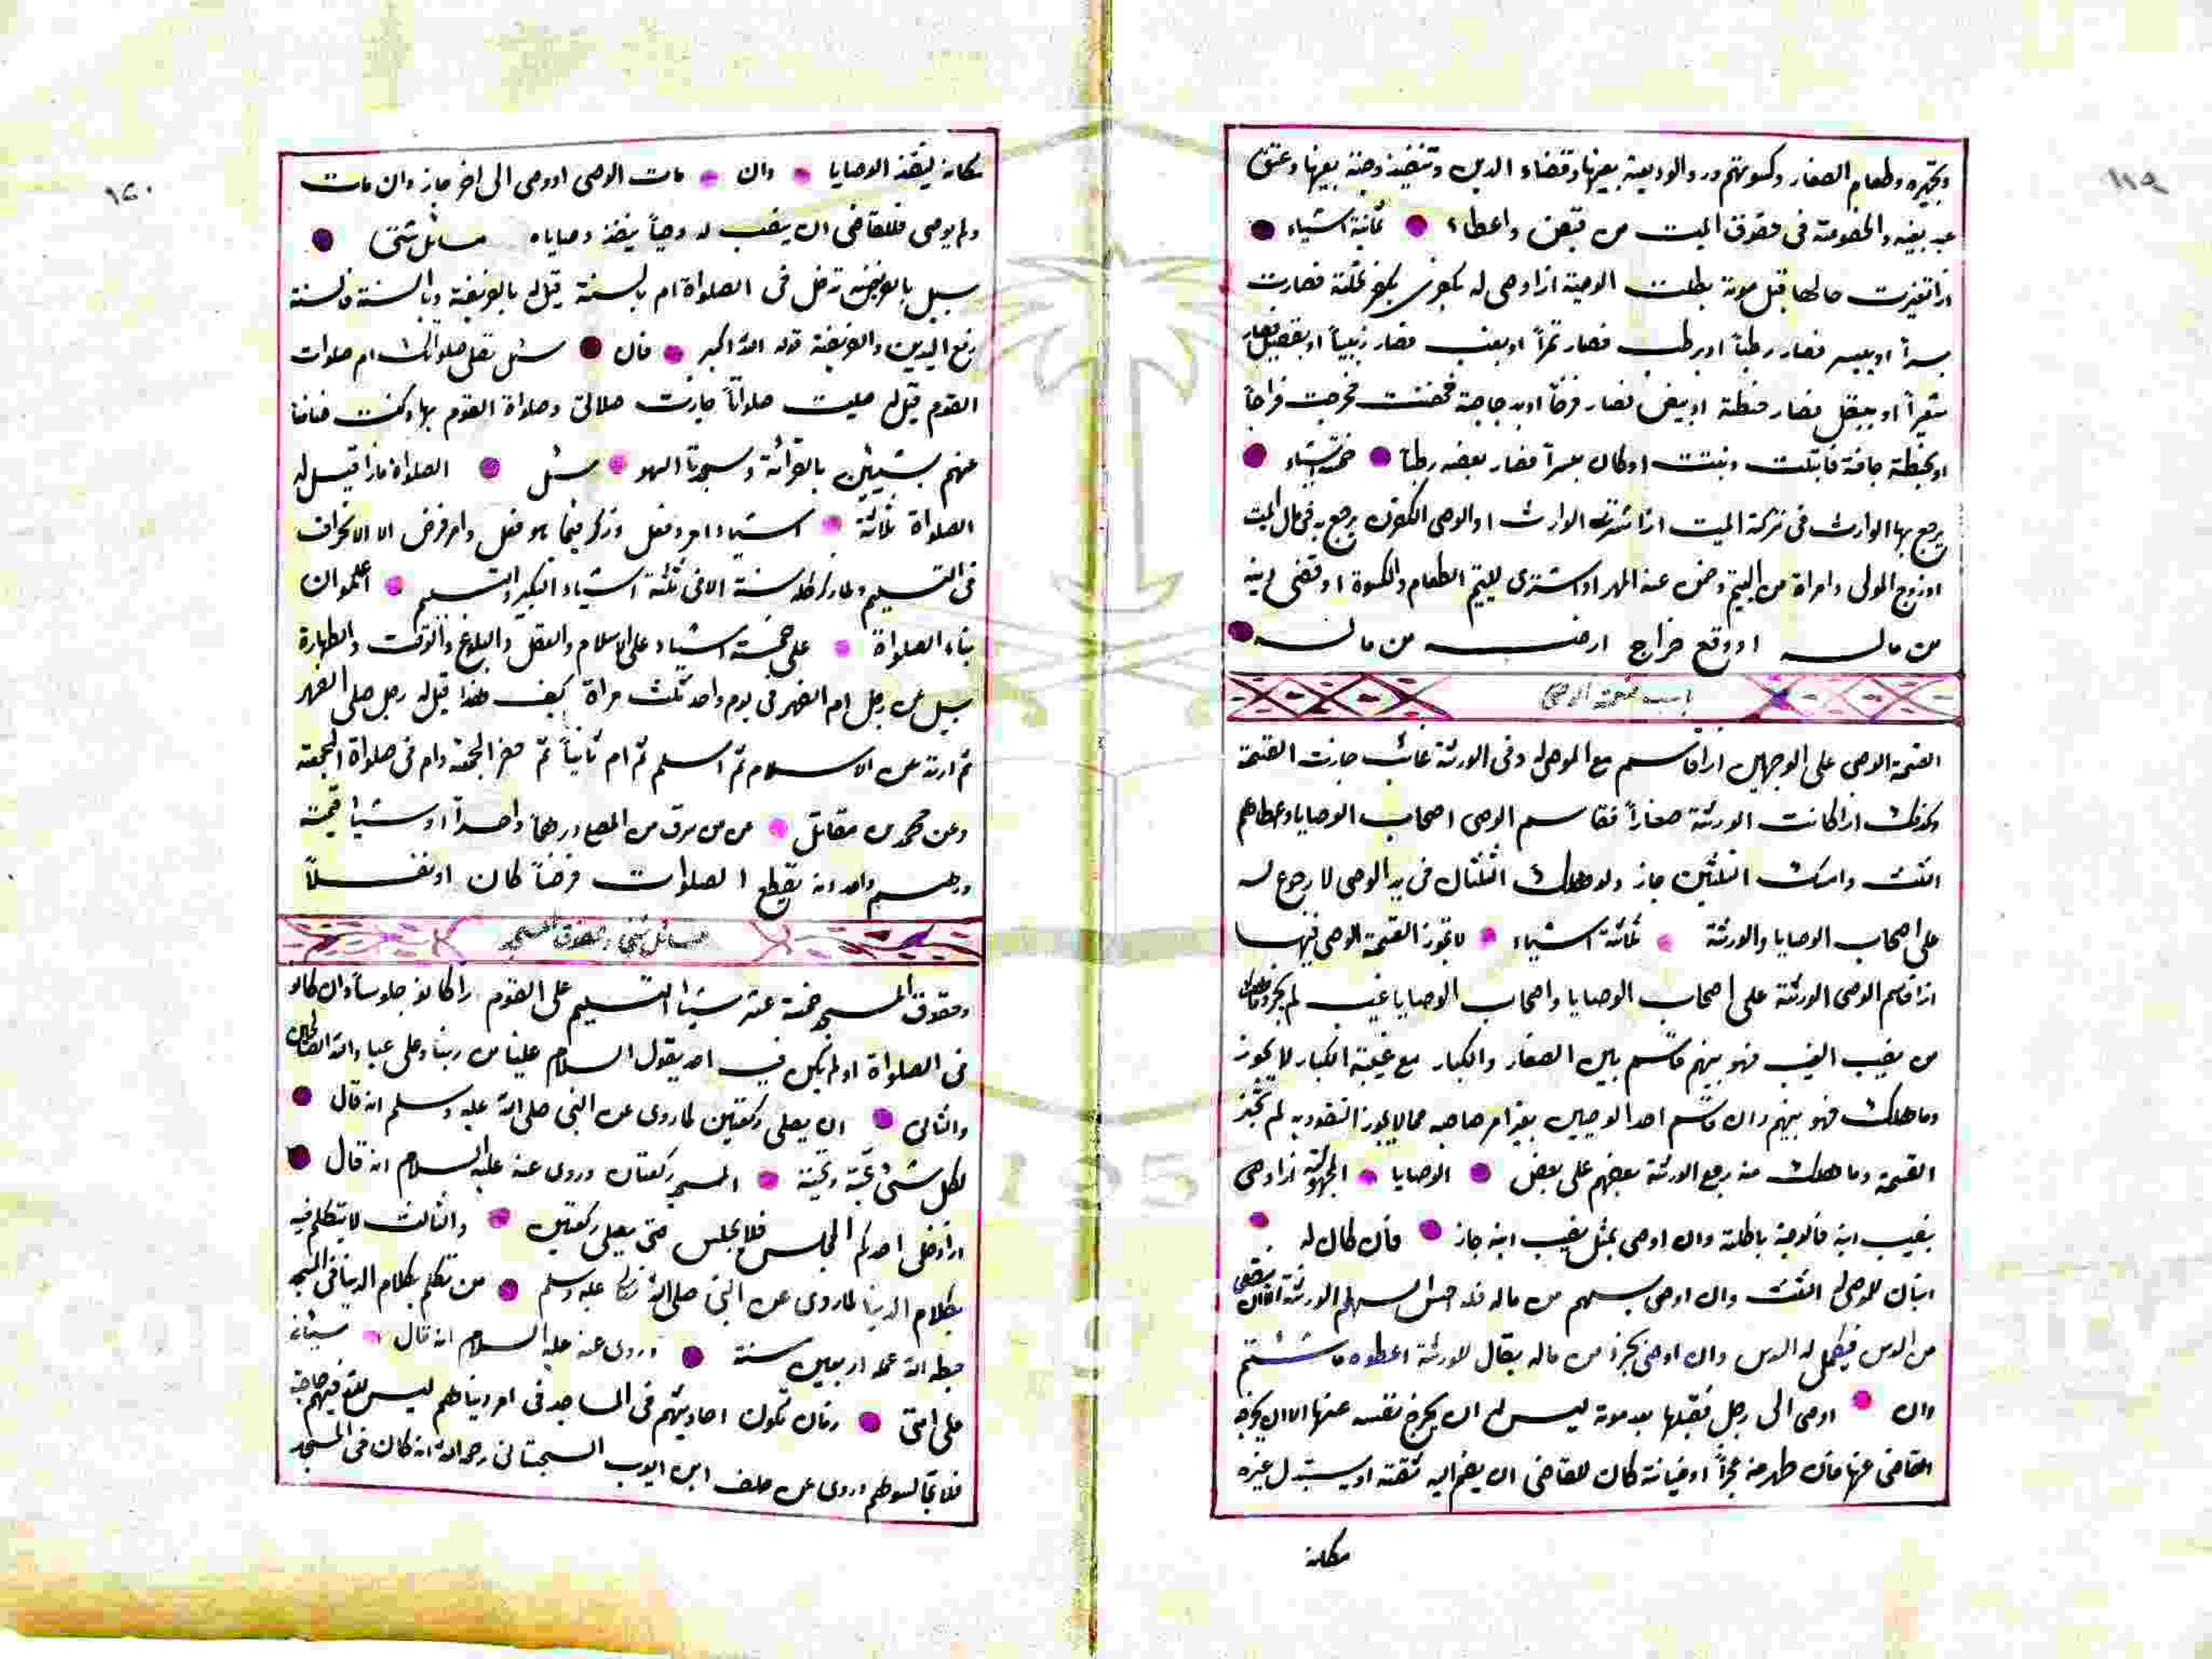 ١١٩
وتجهيزه وطعام الصغار وكسوتهم ورد الوديعة بعينها وقضاء الدين وتنفيذ وصية بعينها وعتق
عبد بعينه والخصومة فى حقوق الميت من قبض واعطاء ثمانية اشياء
اذا تغيرت حالها قبل موته بطلت الوصية اذا اوصى له بكفرى بكفر نخلة فصارت
بسراً او ببسر فصار رطباً او برطب فصار تمراً او بعنب فصار زبيباً او بقصيل فصار
شعيراً او ببقل فصار حنطة او ببيض فصار فرخاً او بدجاجة فحضنت فخرجت فراخاً
او بحنطة جافة فابتلت ونبتت او كان بسراً فصار بعضه رطباً خمسة اشياء
يرجع بها الوارث فى تركة الميت اذا اشترى الوارث او الوصى الكفن يرجع به فى مال الميت
او زوج المولى وامراة من اليتيم وضمن عنه المهر او اشترى لليتيم الطعام والكسوة او قضى دينه
من ماله او وقع خراج ارضه من ماله
باب قسمة الوصى
القسمة الوصى على الوجهين اذا قاسم مع الموصى له وفى الورثة غائب جازت القسمة
وكذلك اذا كانت الورثة صغاراً فقاسم الوصى اصحاب الوصايا واعطاهم
الثلث وامسك الثلثين جاز ولو هلك الثلثان فى يد الوصى لا رجوع له
على اصحاب الوصايا والورثة ثلاثة اشياء لا تجوز القسمة الوصى فيها
اذا قاسم الوصى الورثة على اصحاب الوصايا واصحاب الوصايا غيب لم يجز وما هلك
من نصيب الغيب فهو بينهم قاسم بين الصغار والكبار مع غيبة الكبار لا يجوز
وما هلك فهو بينهم وان قاسم احد الوصيين بغير امر صاحبه مما لا يجوز التفرد به لم تجز
القسمة وما هلك منه يرجع الورثة بعضهم على بعض الوصايا المجهولة اذا اوصى
بنصيب ابنه فالوصية باطلة وان اوصى بمثل نصيب ابنه جاز فان كان له
ابنان للموصى له الثلث وان اوصى بسهم من ماله فله اخس سهام الورثة الا ان ينقص
من السدس فيكمل له السدس وان اوصى بجزء من ماله يقال للورثة اعطوه ما شئتم
وان اوصى الى رجل فقبلها بعد موته ليس له ان يخرج نفسه عنها الا ان يخرجه
القاضى عنها فان ظهر منه عجزاً او خيانة كان للقاضى ان يضم اليه ثقة او يستبدل غيره
مكانه
١٢٠
مكانه لينفذ الوصايا وان مات الوصى اوصى الى اخر جاز وان مات
ولم يوصى فللقاضى ان ينصب له وصياً ينفذ وصاياه مسائل شتى
سيل بالفريضة تدخل فى الصلواة ام بالسنة قيل له بالفريضة وبالسنة فالسنة
رفع اليدين والفريضة قوله الله اكبر فان سئل تصلى صلواتك ام صلوات
القوم قيل له صليت صلواتاً جازت صلاتى وصلواة القوم بها وكنت ضامناً
عنهم بشيئين بالقرائة وسجدتا السهو سئل الصلواة ماذا قيل له
الصلواة ثلاثة اشياء امر وفعل وذكر فيما هو فعل وامر فرض الا الانحراف
فى التسليم وما ذكر كله سنة الا فى ثلثة اشياء التكبير والتسليم اعلموان
بناء الصلواة على خمسة اشياء على الاسلام والعقل والبلوغ والوقت والطهارة
سيل عن رجل ام الظهر فى يوم واحد ثلث مراة كيف هذا قيل له رجل صلى الظهر
ثم ارتد عن الاسلام ثم اسلم ثم ام ثانياً ثم حضر الجمعة وام فى صلواة الجمعة
وعن محمد بن مقاتل عن من سرق من المصلى درهماً واحداً او شيئا قيمته
درهم واحد انه يقطع الصلوات فرضاً كان او نفلاً
مسائل شتى وحقوق المسجد
وحقوق المسجد خمسة عشر شيئا التسليم على القوم اذا كانو جلوساً وان كانو
فى الصلواة او لم يكن فيه احد يقول السلام علينا من ربنا وعلى عباد الله الصالحين
والثانى ان يصلى ركعتين لما روى عن النبى صلى الله عليه وسلم انه قال
لكل شئ تحية وتحية المسجد ركعتان وروى عنه عليه السلام انه قال
اذا دخل احدكم المجلس فلا يجلس حتى يصلى ركعتين والثالث لا يتكلم فيه
بكلام الدنيا لما روى عن النبى صلى الله عليه وسلم من تكلم بكلام الدنيا فى المسجد
حبط الله عمله اربعين سنة وروى عنه عليه السلام انه قال سيئات
على امتى زمان تكون احاديثهم فى المساجد فى امر دنياهم ليس لله فيهم حاجة
فلا تجالسوهم وروى عن خلف ابن ايوب السجستانى رحمه الله انه كان فى المسجد